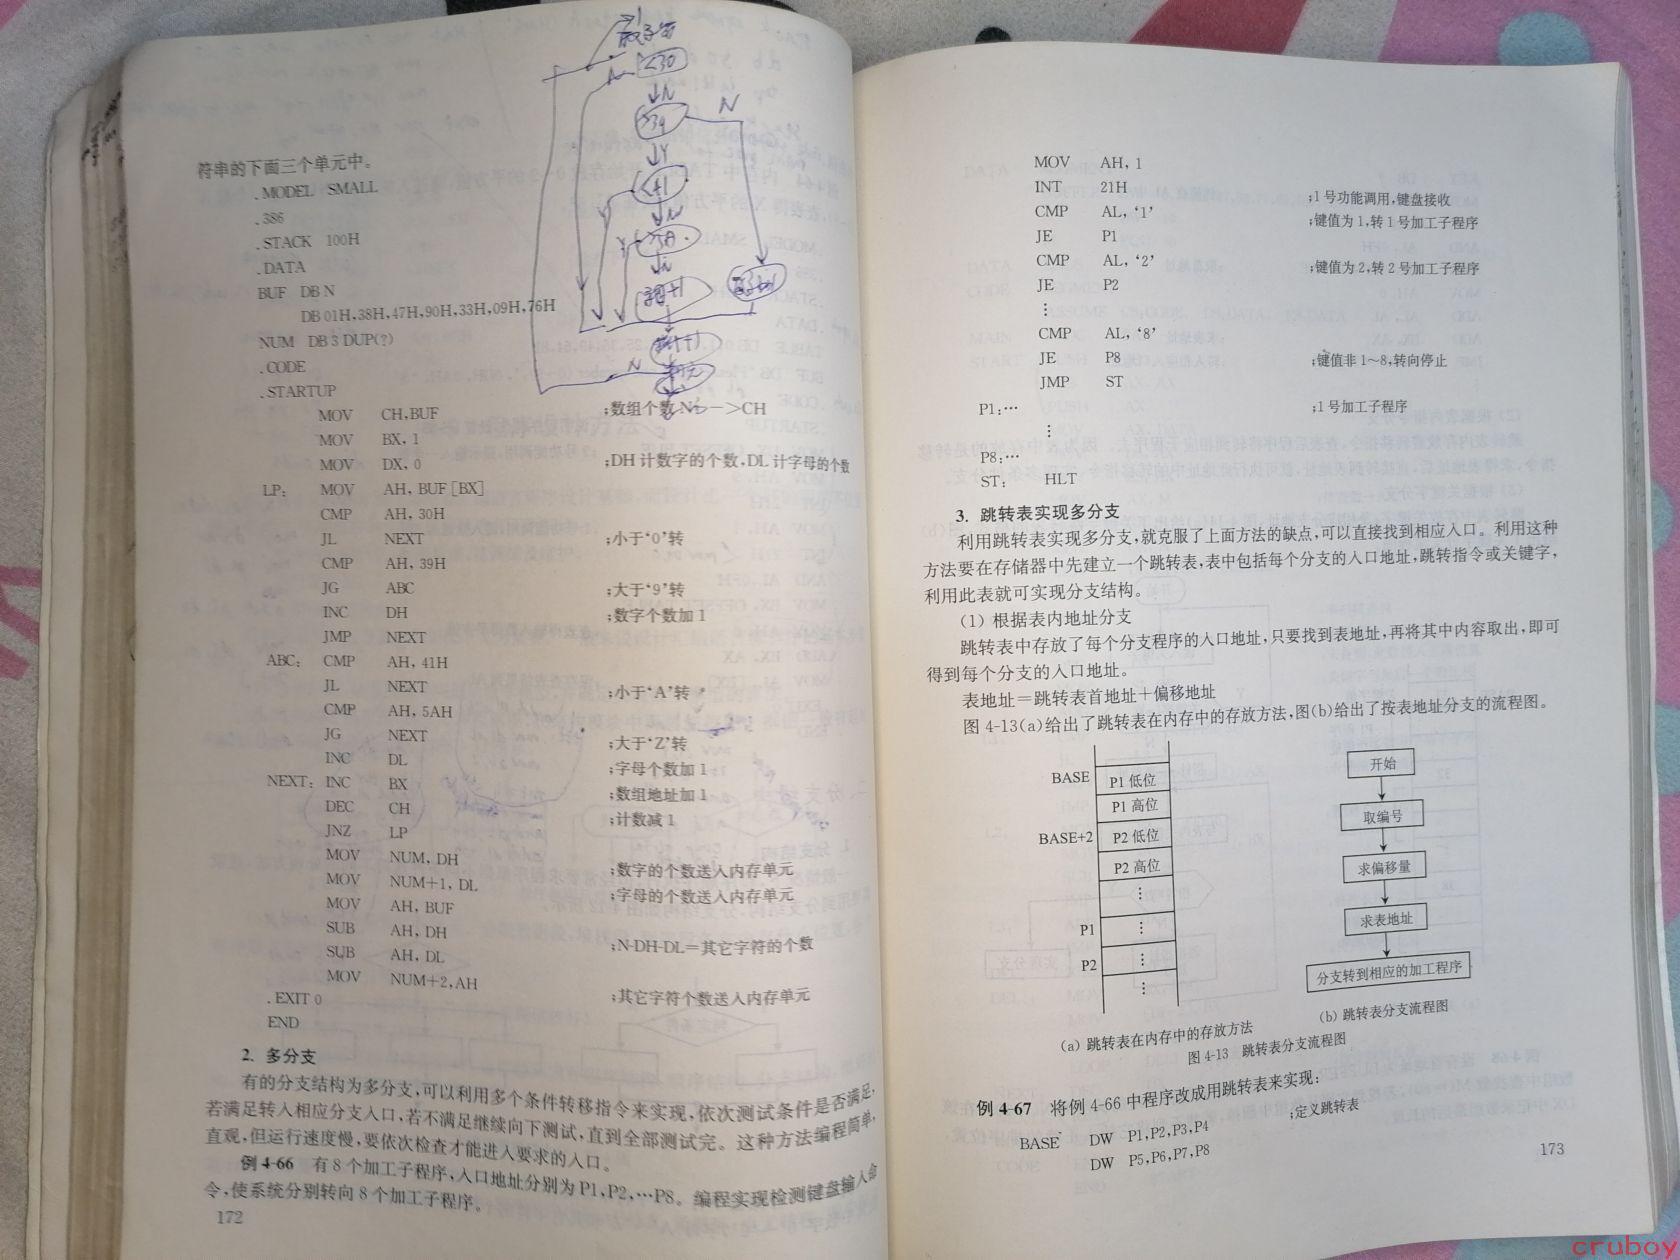 符串的下面三个单元中。
.MODEL SMALL
.386
.STACK 100H
.DATA
BUF DB N
DB 01H,38H,47H,90H,33H,09H,76H
NUM DB 3 DUP(?)
.CODE
.STARTUP
MOV CH,BUF ;数组个数 N—>CH
MOV BX, 1
MOV DX, 0 ;DH 计数字的个数,DL 计字母的个数
LP: MOV AH, BUF [BX]
CMP AH, 30H
JL NEXT ;小于‘0’转
CMP AH, 39H
JG ABC ;大于‘9’转
INC DH ;数字个数加 1
JMP NEXT
ABC: CMP AH, 41H
JL NEXT ;小于‘A’转
CMP AH, 5AH
JG NEXT ;大于‘Z’转
INC DL ;字母个数加 1
NEXT: INC BX ;数组地址加 1
DEC CH ;计数减 1
JNZ LP
MOV NUM, DH ;数字的个数送入内存单元
MOV NUM+1, DL ;字母的个数送入内存单元
MOV AH, BUF
SUB AH, DH
SUB AH, DL ;N-DH-DL=其它字符的个数
MOV NUM+2,AH
.EXIT 0 ;其它字符个数送入内存单元
END
2. 多分支
有的分支结构为多分支,可以利用多个条件转移指令来实现,依次测试条件是否满足,
若满足转入相应分支入口,若不满足继续向下测试,直到全部测试完。这种方法编程简单,
直观,但运行速度慢,要依次检查才能进入要求的入口。
例 4-66 有 8 个加工子程序,入口地址分别为 P1,P2,…P8。编程实现检测键盘输入命
令,使系统分别转向 8 个加工子程序。
172
<30
N
>39
N
Y
<41
N
Y
N
MOV AH, 1
INT 21H ;1 号功能调用,键盘接收
CMP AL, ‘1’ ;键值为 1,转 1 号加工子程序
JE P1
CMP AL, ‘2’ ;键值为 2,转 2 号加工子程序
JE P2
⋮
CMP AL, ‘8’
JE P8 ;键值非 1～8,转向停止
JMP ST
P1:… ;1 号加工子程序
⋮
P8:…
ST: HLT
3. 跳转表实现多分支
利用跳转表实现多分支,就克服了上面方法的缺点,可以直接找到相应入口。利用这种
方法要在存储器中先建立一个跳转表,表中包括每个分支的入口地址,跳转指令或关键字,
利用此表就可实现分支结构。
(1) 根据表内地址分支
跳转表中存放了每个分支程序的入口地址,只要找到表地址,再将其中内容取出,即可
得到每个分支的入口地址。
表地址=跳转表首地址+偏移地址
图 4-13(a)给出了跳转表在内存中的存放方法,图(b)给出了按表地址分支的流程图。
BASE P1 低位
P1 高位
BASE+2 P2 低位
P2 高位
⋮
P1 ⋮
P2 ⋮
⋮
开始
取编号
求偏移量
求表地址
分支转到相应的加工程序
(a) 跳转表在内存中的存放方法
(b) 跳转表分支流程图
图 4-13 跳转表分支流程图
例 4-67 将例 4-66 中程序改成用跳转表来实现:
BASE DW P1,P2,P3,P4 ;定义跳转表
DW P5,P6,P7,P8
173
cruboy